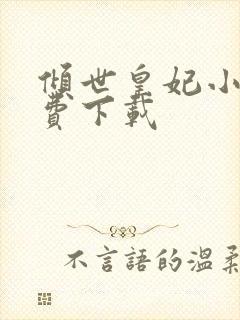 傾世皇妃小
費下載
不言語的溫柔